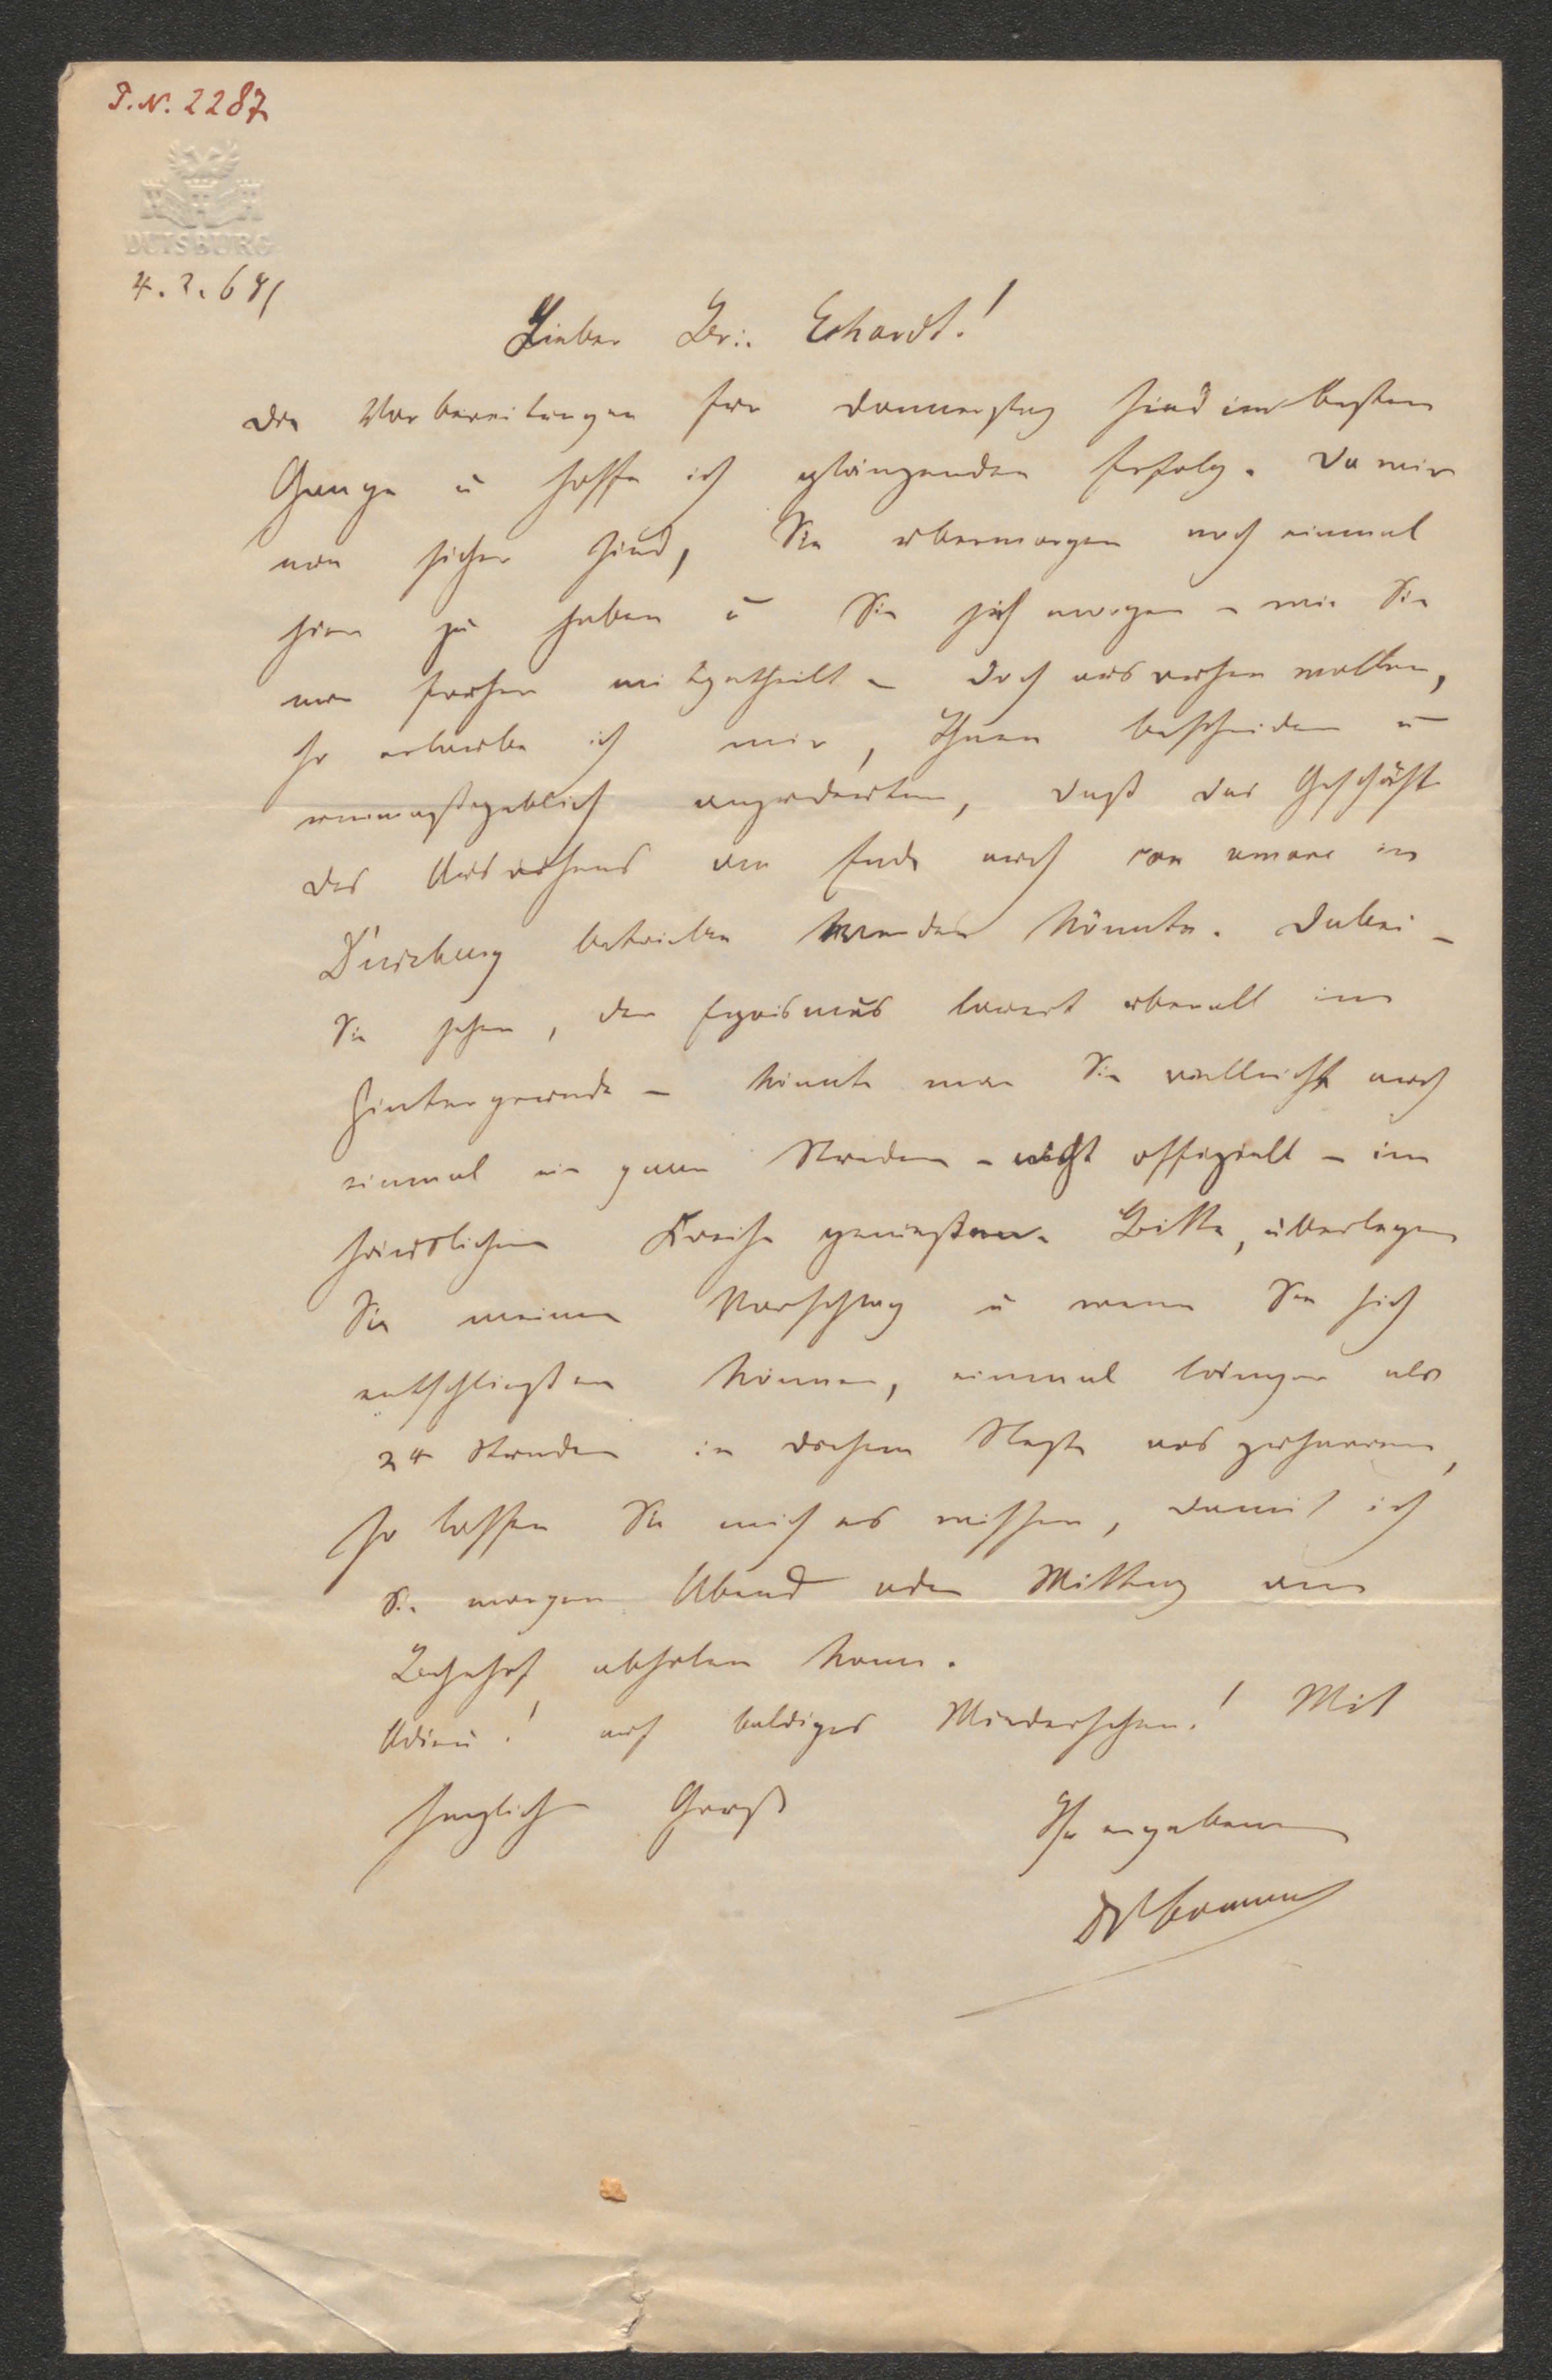 T. N. 2287
DUISBURG
4. 2. 69
Lieber Br∴ Eckardt!
die Vorbereitungen für Donnerstag sind im besten
Gange u hoffe ich glänzenden Erfolg. Da wir
nun sicher sind, Sie übermorgen noch einmal
hier zu haben u Sie sich morgen – wie Sie
uns früher mitgetheilt – doch ausruhen wollen,
so erlaube ich mir, Ihnen bescheiden u
unmaßgeblich anzudeuten, daß das Geschäft
des Ausruhens am Ende auch con amore in
Duisburg betrieben werden könnte. Dabei –
Sie sehen, der Egoismus lauert überall im
Hintergrunde – könnte man Sie vielleicht auch
einmal ein paar Stunden – nicht offiziell – im
häuslichen Kreise genießen. Bitte, überlegen
Sie meinen Vorschlag u wenn Sie sich
entschließen können, einmal länger als
24 Stunden in diesem Neste auszuharren,
so lassen Sie mich es wissen, damit ich
Sie morgen Abend oder Mittag am
Bahnhof abholen kann.
Adieu! auf baldiges Wiedersehen! Mit
herzlichem Gruß
Ihr ergebener